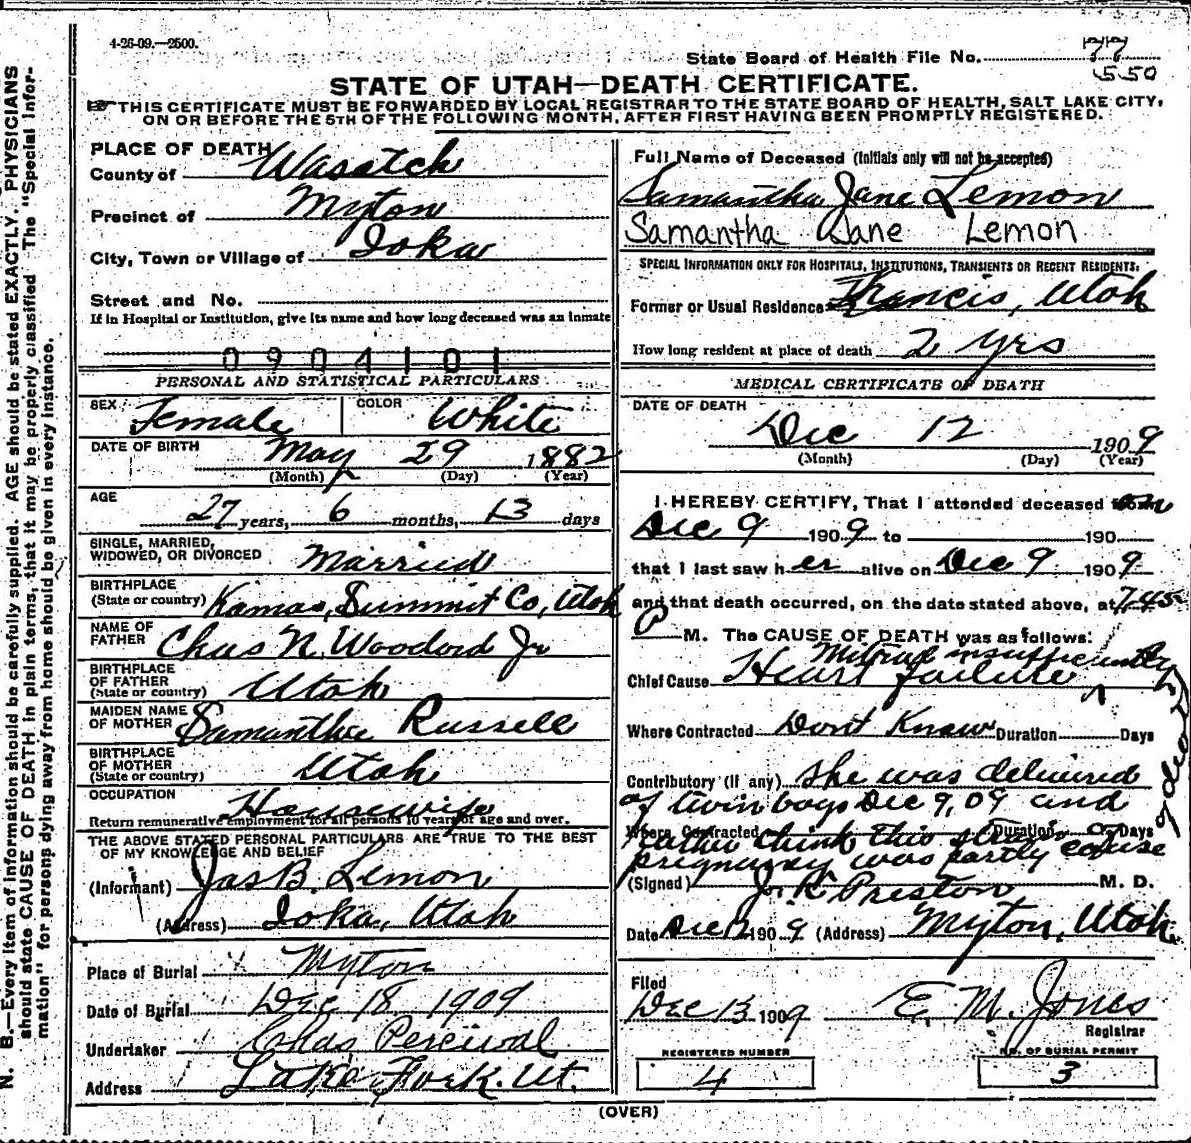 4-26-09.—2500.
State Board of Health File No. 77
550
STATE OF UTAH—DEATH CERTIFICATE.
THIS CERTIFICATE MUST BE FORWARDED BY LOCAL REGISTRAR TO THE STATE BOARD OF HEALTH, SALT LAKE CITY,
ON OR BEFORE THE 5TH OF THE FOLLOWING MONTH, AFTER FIRST HAVING BEEN PROMPTLY REGISTERED.
N. B.—Every item of information should be carefully supplied. AGE should be stated EXACTLY. PHYSICIANS
should state CAUSE OF DEATH in plain terms, that it may be properly classified. The "Special Infor-
mation" for persons dying away from home should be given in every instance.
PLACE OF DEATH
County of Wasatch
Precinct of Myton
City, Town or Village of Ioka
Street and No.
If in Hospital or Institution, give its name and how long deceased was an inmate
0904101
PERSONAL AND STATISTICAL PARTICULARS
SEX Female COLOR White
DATE OF BIRTH May 29 1882
(Month) (Day) (Year)
AGE
27 years, 6 months, 13 days
SINGLE, MARRIED,
WIDOWED, OR DIVORCED Married
BIRTHPLACE
(State or country) Kamas, Summit Co, Utah
NAME OF
FATHER Chas N. Woodord Jr
BIRTHPLACE
OF FATHER
(State or country) Utah
MAIDEN NAME
OF MOTHER Samantha Russell
BIRTHPLACE
OF MOTHER
(State or country) Utah
OCCUPATION Housewife
Return remunerative employment for all persons 10 years of age and over.
THE ABOVE STATED PERSONAL PARTICULARS ARE TRUE TO THE BEST
OF MY KNOWLEDGE AND BELIEF
(Informant) Jas B. Lemon
(Address) Ioka, Utah
Place of Burial Myton
Date of Burial Dec 18 1909
Undertaker Chas Percival
Address Lake Fork. Ut.
Full Name of Deceased (Initials only will not be accepted)
Samantha Jane Lemon
Samantha Jane Lemon
SPECIAL INFORMATION ONLY FOR HOSPITALS, INSTITUTIONS, TRANSIENTS OR RECENT RESIDENTS.
Former or Usual Residence Francis, Utah
How long resident at place of death 2 yrs
MEDICAL CERTIFICATE OF DEATH
DATE OF DEATH
Dec 12 1909
(Month) (Day) (Year)
I HEREBY CERTIFY, That I attended deceased
Dec 9 1909 to 190
that I last saw her alive on Dec 9 1909
and that death occurred, on the date stated above, at 7.45
P M. The CAUSE OF DEATH was as follows:
Mitral insufficiently
Chief Cause Heart failure
Where Contracted Dont Know Duration Days
Contributory (if any) She was delivered
of twin boys Dec 9, 09 and
Where Contracted Duration Days
rather think this
pregnancy was partly cause
(Signed) J. K. Preston M. D.
Date Dec 12 1909 (Address) Myton, Utah
Filed
Dec 13 1909 E. M. Jones
Registrar
REGISTERED NUMBER
4
NO. OF BURIAL PERMIT
3
(OVER)